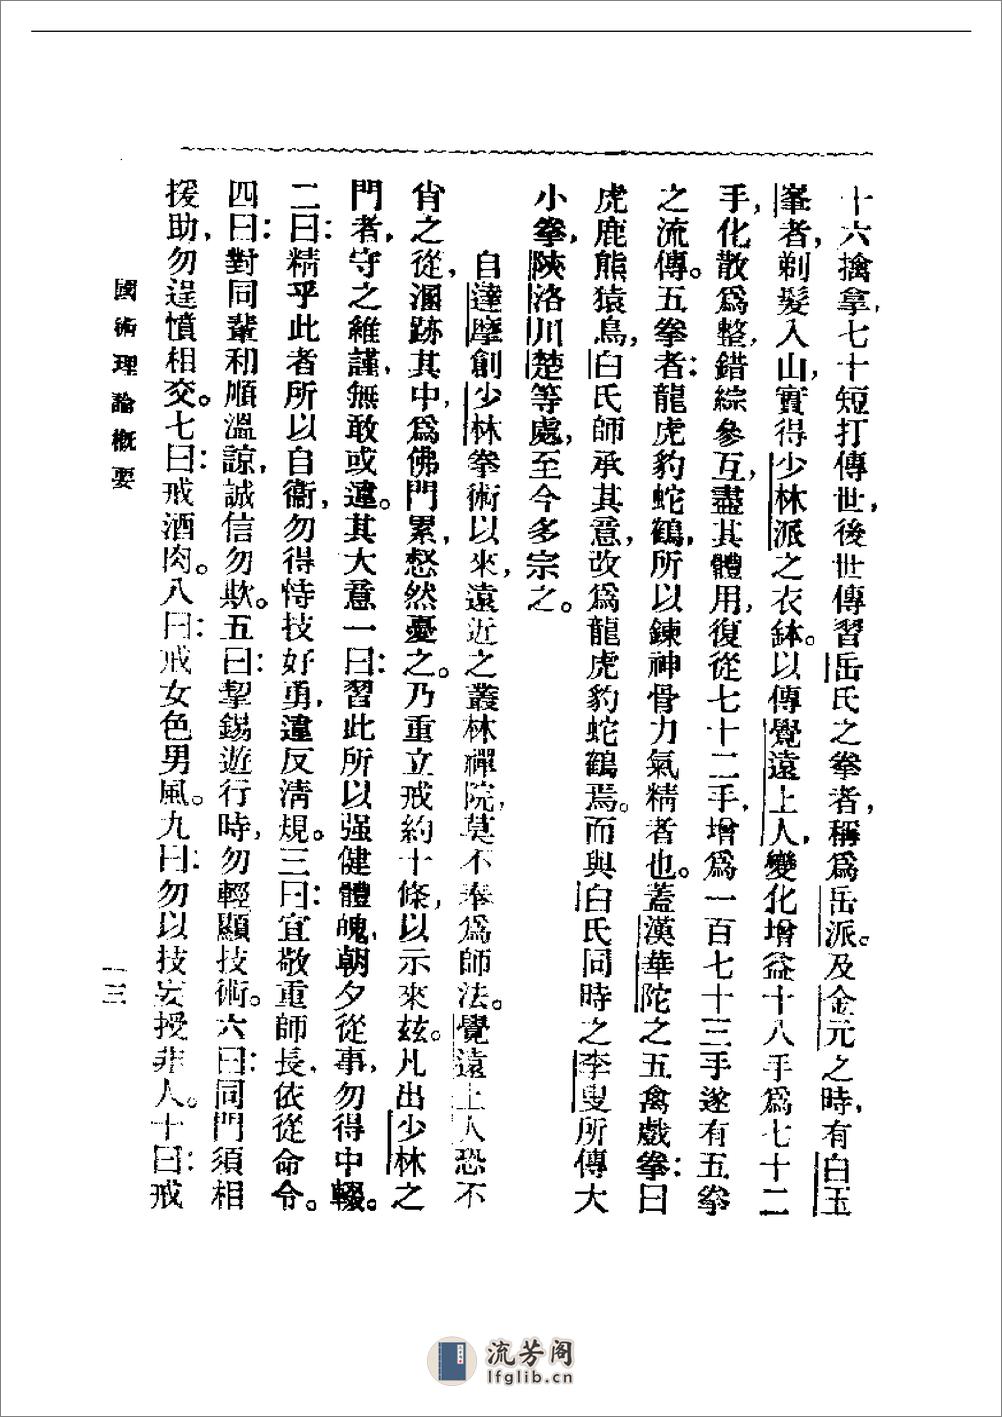 十六擒拿、七十短打傳世，後世傳習岳氏之拳者，稱爲岳派。及金元之時，有白玉
峯者，剃髮入山，實得少林派之衣鉢。以傳覺遠上人，變化增益十八手爲七十二
手，化散爲整，錯綜參互，盡其體用，復從七十二手，增爲一百七十三手遂有五拳
之流傳。五拳者：龍虎豹蛇鶴，所以鍊神骨力氣精者也。蓋漢華陀之五禽戲拳：曰
虎鹿熊猿鳥，白氏師承其意，改爲龍虎豹蛇鶴焉。而與白氏同時之李叟所傳大
小拳，陝洛川楚等處，至今多宗之。
自達摩創少林拳術以來，遠近之叢林禪院，莫不奉爲師法。覺遠上人恐不
肖之從，溷跡其中，爲佛門累，愁然憂之。乃重立戒約十條，以示來茲。凡出少林之
門者，守之維謹，無敢或違。其大意一曰：習此所以强健體魄，朝夕從事，勿得中輟。
二曰：精乎此者所以自衞，勿得恃技好勇，違反淸規。三曰：宜敬重師長，依從命令。
四曰：對同輩和順溫諒，誠信勿欺。五曰：挈錫遊行時，勿輕顯技術。六曰：同門須相
援助，勿逞憤相交。七曰：戒酒肉。八曰：戒女色男風。九曰：勿以技妄授非人。十曰：戒
國術理論槪要
一三
流芳阁
lfglib.cn